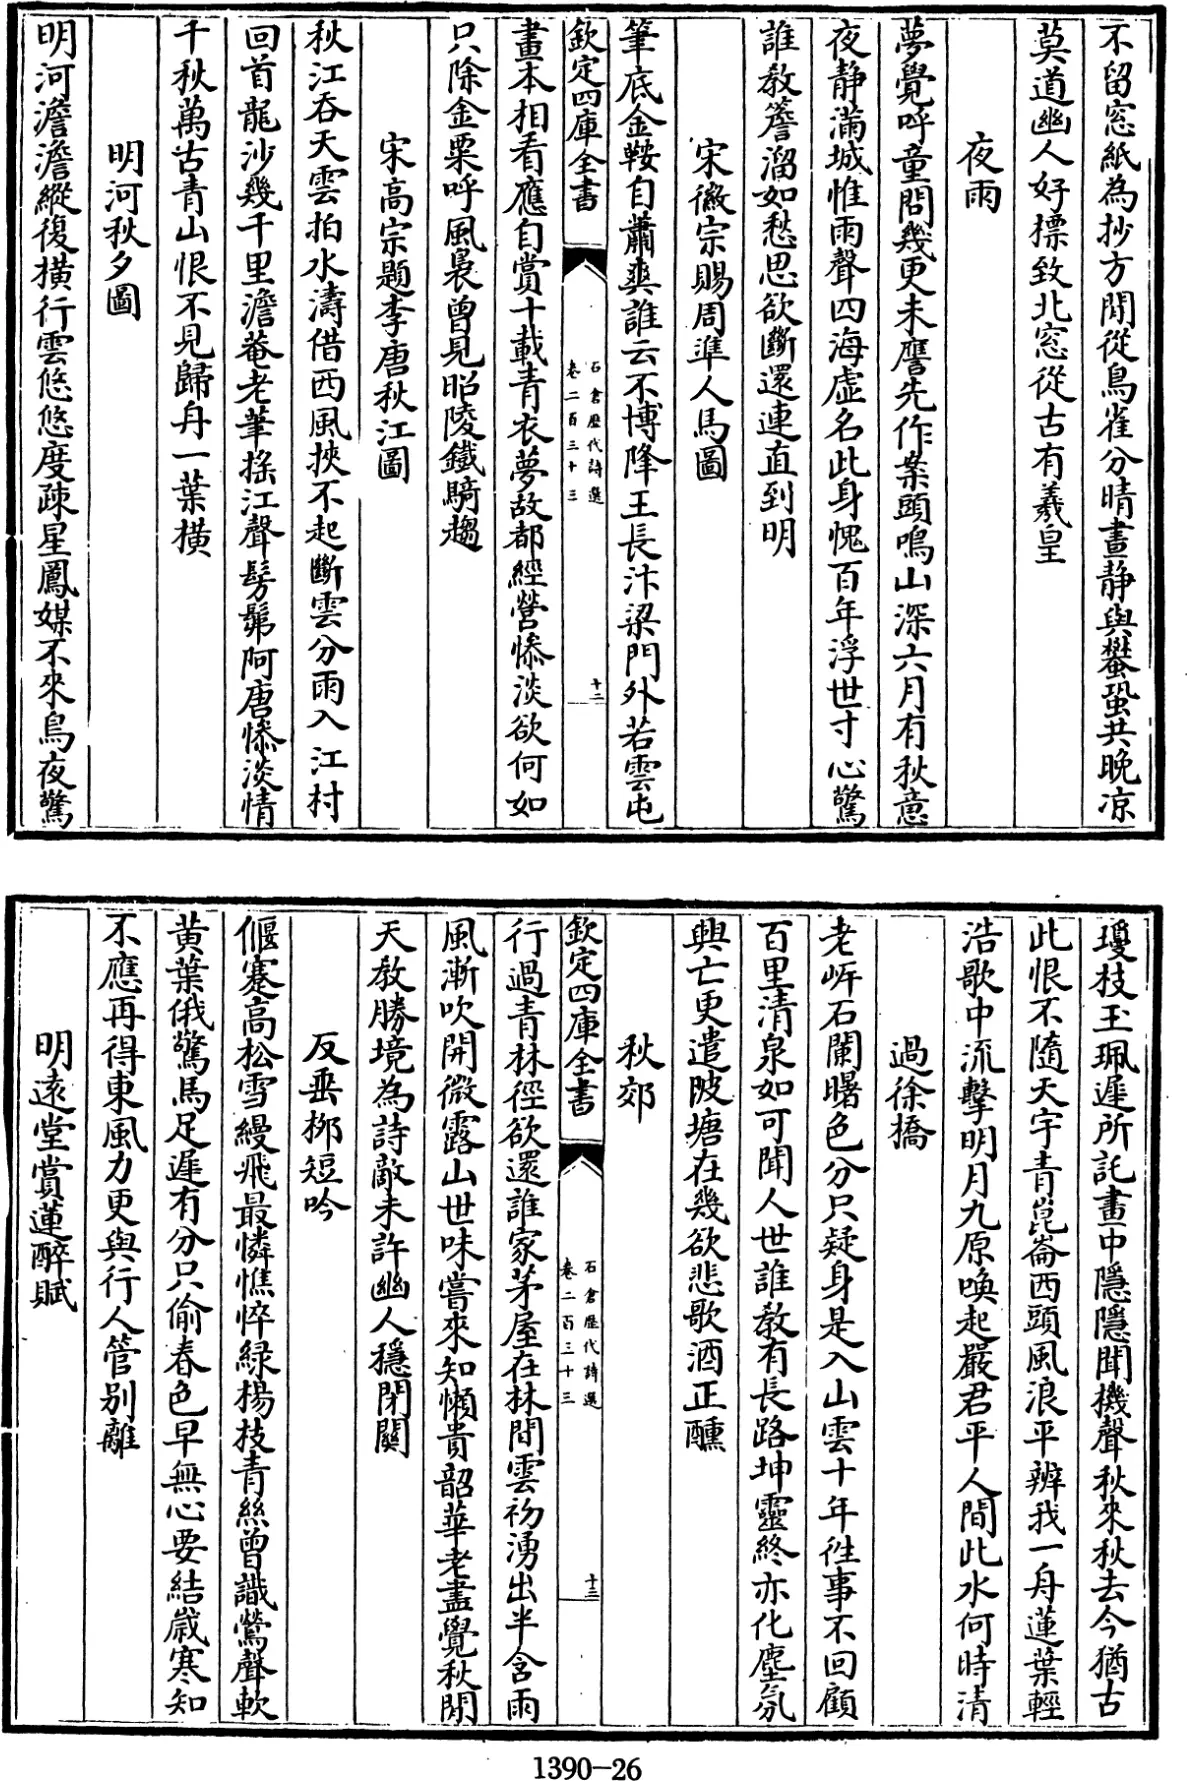 不留窓紙為抄方閒從鳥雀分晴晝静與蠭蛩共晩凉
莫道幽人好標致北窓從古有羲皇
夜雨
夢覺呼童問幾更未譍先作案頭鳴山深六月有秋意
夜静滿城惟雨聲四海虛名此身愧百年浮世寸心驚
誰教簷溜如愁思欲斷還連直到明
宋徽宗賜周準人馬圖
筆底金鞍自蕭爽誰云不博降王長汴梁門外若雲屯
欽定四庫全書
石倉歷代詩選
卷二百三十三
十二
畫本相看應自賞十載青衣夢故都經營慘淡欲何如
只除金粟呼風裊曾見昭陵鐵騎趨
宋高宗題李唐秋江圖
秋江吞天雲拍水濤借西風挾不起斷雲分雨入江村
回首龍沙幾千里澹菴老筆揺江聲髣髴阿唐慘淡情
千秋萬古青山恨不見歸舟一葉横
明河秋夕圖
明河澹澹縱復横行雲悠悠度疎星鳳媒不來烏夜驚
瓊枝玉珮遲所託畫中隱隱聞機聲秋來秋去今猶古
此恨不隨天宇青崑崙西頭風浪平辨我一舟蓮葉輕
浩歌中流擊明月九原喚起嚴君平人間此水何時清
過徐橋
老㟁石闌曙色分只疑身是入山雲十年徃事不回顧
百里清泉如可聞人世誰教有長路坤靈終亦化塵氛
興亡更遣陂塘在幾欲悲歌酒正醺
秋郊
欽定四庫全書
石倉歷代詩選
卷二百三十三
十三
行過青林徑欲還誰家茅屋在林間雲初湧出半含雨
風漸吹開微露山世味嘗來知懶貴韶華老盡覺秋閒
天教勝境為詩敵未許幽人穩閉關
反垂栁短吟
偃蹇高松雪縵飛最憐憔悴緑楊枝青絲曾識鶯聲軟
黄葉俄驚馬足遲有分只偷春色早無心要結嵗寒知
不應再得東風力更與行人管别離
明逺堂賞蓮醉賦
1390-26